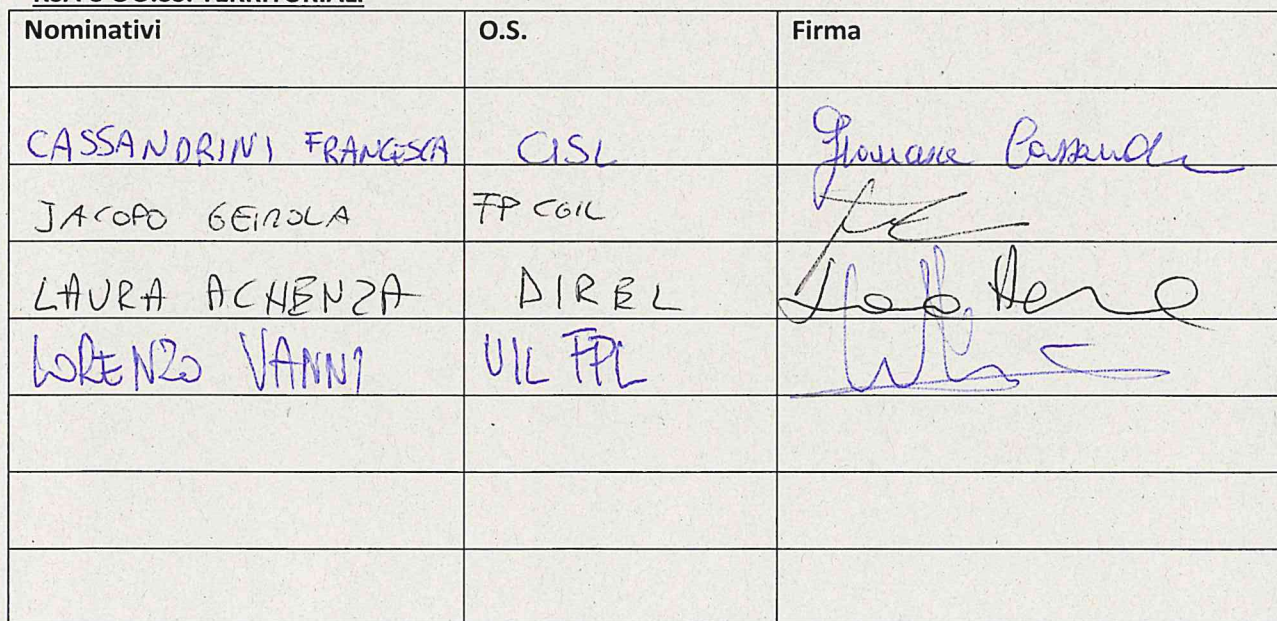 Nominativi O.S. Firma
CASSANDRINI FRANCESCA CISL
JACOPO GEIROLA FP CGIL
LAURA ACHENZA DIREL
LORENZO VANNI UIL FPL